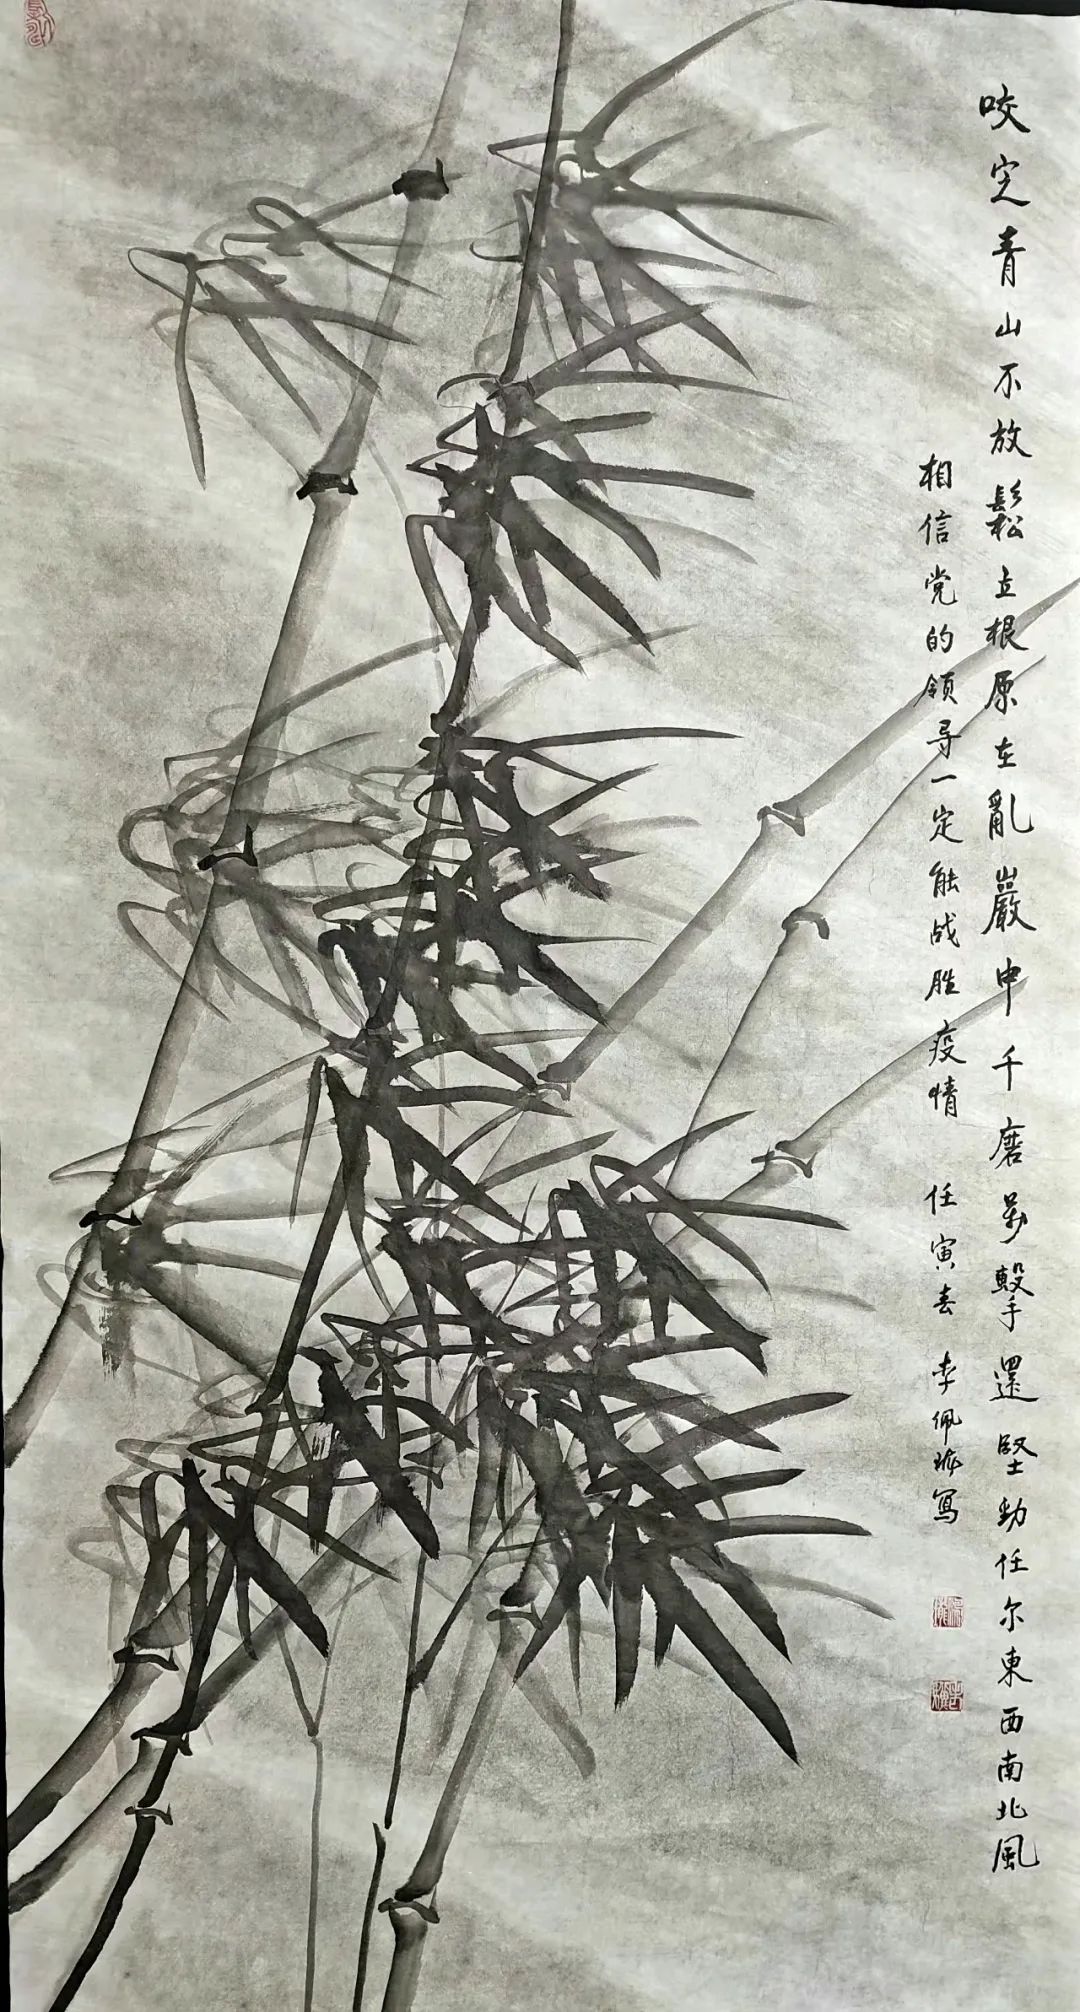 咬定青山不放鬆立根原在亂巖中千磨萬擊還堅勁任尔東西南北風
相信党的领导一定能战胜疫情 任寅春 李佩 寫